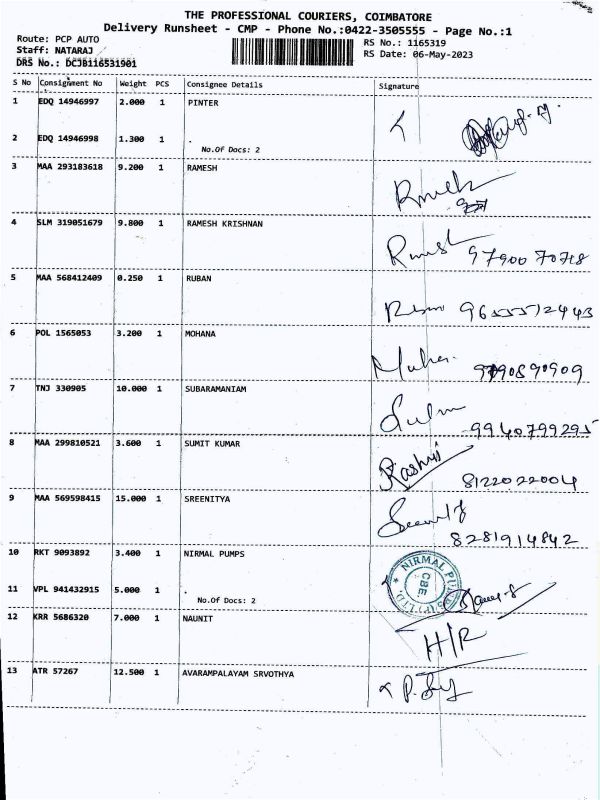 THE PROFESSIONAL COURIERS, COIMBATORE
Delivery Runsheet - CMP - Phone No.:0422-3505555 - Page No.:1
Route: PCP AUTO
RS No.: 1165319
Staff: NATARAJ
RS Date: 06-May-2023
DRS No.: DCJB116531901
S No Consignment No Weight PCS Consignee Details Signature
1 EDQ 14946997 2.000 1 PINTER
2 EDQ 14946998 1.300 1 .
No.Of Docs: 2
3 MAA 293183618 9.200 1 RAMESH
4 SLM 319051679 9.800 1 RAMESH KRISHNAN
97900 70718
5 MAA 568412409 0.250 1 RUBAN
9655512443
6 POL 1565053 3.200 1 MOHANA
9790890909
7 TNJ 330905 10.000 1 SUBARAMANIAM
9940799295
8 MAA 299810521 3.600 1 SUMIT KUMAR
Rashmi
8122022004
9 MAA 569598415 15.000 1 SREENITYA
8281914842
10 RKT 9093892 3.400 1 NIRMAL PUMPS
NIRMAL PUMPS (P) LTD.
CBE
11 VPL 941432915 5.000 1 .
No.Of Docs: 2
12 KRR 5686320 7.000 1 NAUNIT
H/R
13 ATR 57267 12.500 1 AVARAMPALAYAM SRVOTHYA